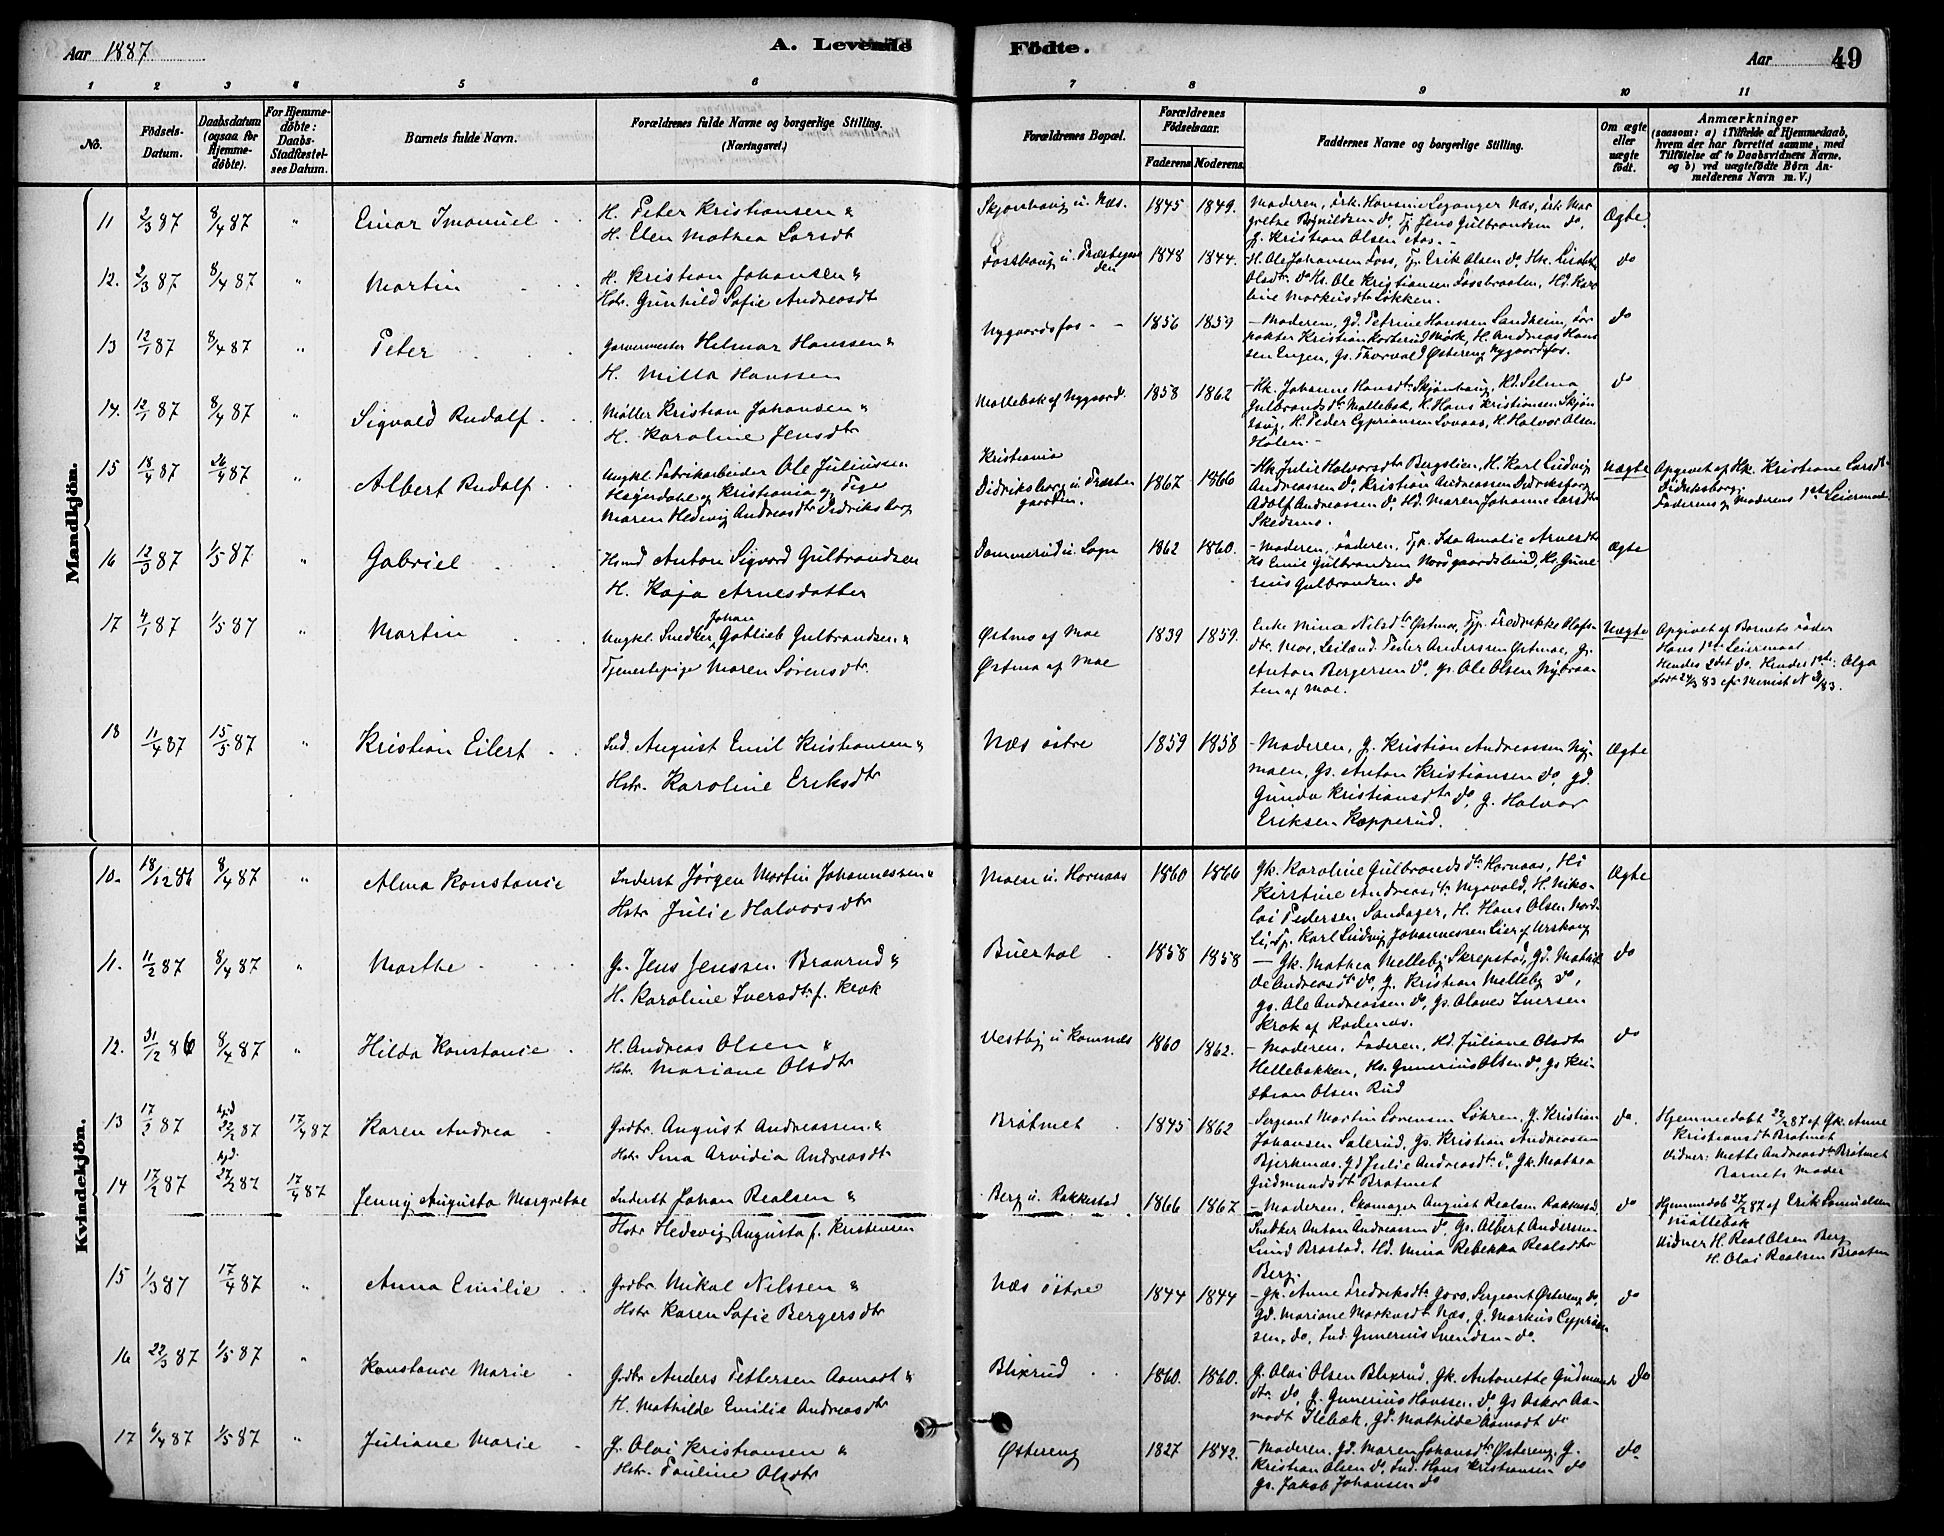 Aar 1887
A. Levende Födte.
Aar
49
1 2 3 4 5 6 7 8 9 10 11
No.
Födsels-Datum.
Daabsdatum (ogsaa for Hjemmedöbte).
For Hjemmedöbte: Daabs-Stadfæstelses Datum.
Barnets fulde Navn.
Forældrenes fulde Navne og borgerlige Stilling. (Næringsvei.)
Forældrenes Bopæl.
Forældrenes Födselsaar.
Faderens. Moderens.
Faddernes Navne og borgerlige Stilling.
Om ægte eller uægte födt.
Anmærkninger
(saasom: a) i Tilfælde af Hjemmedaab, hvem der har forrettet samme, med Tilföielse af to Daabsvidners Navne, og b) ved uægtefödte Börn Anmelderens Navn m. V.)
Mandkjön.
11 2/3 87 8/4 87 " Einar Imanuel
H. Peter Kristiansen &
H. Elen Mathea Larsdt
Skjönhaug u. Næs. 1845 1849.
Moderen,
J. Kristian Olsen Aas.
Ægte.
12. 2/3 87 8/4 87 " Martin
H. Kristian Johansen &
Hstr. Gunhild Sofie Andreasdt
Fosshaug u. Præstegaarden 1848 1844.
H. Ole Johansen Foss, Tj. Erik Olsen do, Hk. Lisabet
Olsdtr. do Hs. Ole Kristiansen Fossbraaten, Hd. Karoline Markusdtr Løkken.
do
13 12/1 87 8/4 87 " Peter
Garvermester Hilmar Hanssen &
H. Milla Hanssen
Nygaardsfos 1856 1859
- Moderen, gd. Petrine Hanssen Sandheim, Forpakter Kristian Kosterud Mörk, H. Andreas Hanssen Engen, Gs. Thorvald Østereng Nygaardsfos.
do
14. 12/1 87 8/4 87 " Sigvald Rudolf
Møller Kristian Johansen &
H. Karoline Jensdtr
Møllebak af Nygaard. 1858 1862
- Hk. Johanne Hansdtr Skjønhaug, Hd. Selma
Gulbrandsdtr Møllebak, H. Hans Kristiansen Skjønhaug, H. Peder Cyprianson Lovaas, H. Halvor Olsen
Holen.
do
15 18/4 87 26/4 87 " Albert Rudolf
Ungkl. Fabrikarbeider Ole Juliussen
Høgerdahl af Kristiania og Pige
Maren Hedevig Andreasdtr Didriksborg
Kristiania
Didriksborg u. Præstegaarden. 1867 1866
- Hk. Julie Halvorsdtr Bergslien, H. Karl Ludvig
Andreassen do, Kristian Andreassen Didriksborg
Adolf Andreassen do, Hd. Maren Johanne Larsdtr
Skedsmo.
Uægte
Opgivet af Hk. Kristiane Larsdtr
Didriksborg.
Faderens og Moderens 1ste Leiermaal
16 12/3 87 1/5 87 " Gabriel
Hsmd Anton Sigvard Gulbrandsen
H. Kaja Arnesdatter
Dammerud u. Sogn 1862 1860.
- Moderen, Faderen, Tjp. Ida Amalie Arnesdtr
Hs Emil Gulbrandsen Nordgaardslund, Hs. Gunerius Gulbrandsen do
Ægte
17 4/1 87 1/5 87 " Martin
Ungkl. Snedker Johan Gotlieb Gulbrandsen &
Tjenestepige Maren Sørensdtr.
Østmo af Moe
Østmo af Moe
1839 1859.
Enke Mina Nilsdtr Østmo, Tjp. Fredrikke Olafsdtr. Moe, Leilænd. Peder Anderssen Østmoe, J.
Anton Bergersen do, Gs. Ole Olsen Nybraaten af Moe.
Uægte
Opgivet af Barnets Fader
Hans 1ste Leiermaal
Hendes 2det do. Hendes 1ste: Olga
född 24/3 83 cfr. Minist N 3/83.
18 11/4 87 15/5 87 " Kristian Eilert
Ind. August Emil Kristiansen &
Hstr. Karoline Eriksdtr
Næs østre 1859 1858
- Moderen, J. Kristian Andreassen Nymoen, Gs. Anton Kristiansen do, gd.
Gunda Kristiansdtr do, G. Halvor
Eriksen Kopperud.
Ægte
Kvindekjön.
10. 18/12 86 8/4 87 " Alma Konstanse
Inderst Jørgen Martin Johannessen &
Hstr Julie Halvorsdtr
Moen u. Hornaas 1860 1866
Gk. Karoline Gulbrandsdtr Hornaas, Hk
Kirstine Andreasdtr Myrvold, H. Nikolai Pedersen Sandager, H. Hans Olsen Nordli, Tj. Karl Ludvig Johannessen Lier af Urskoug
Ægte
11. 11/2 87 8/4 87 " Marthe
G. Jens Jenssen Braarud &
H. Karoline Iversdtr f. Krok
Buerhol 1858 1858
- Gk. Mathea Melleby Skrepstad, Gd. Matilde Andreasdtr do, J. Kristian Melleby do,
Gs. Ole Andreassen do, Gs. Olaves Iversen
Krok af Rødenæs.
do
12. 31/12 86 8/4 87 " Hilda Konstanse
H. Andreas Olsen &
Hstr. Mariane Olsdtr
Vestby u Kamnæs 1860 1862.
- Moderen, Faderen, Hd. Juliane Olsdtr
Hellebakken, Hs. Gunerius Olsen do, Gs Kristian Olsen Rud
do
13 17/2 87 hjd 22/2 87 17/4 87 Karen Andrea
Grdbr. August Andreassen &
Hstr Sina Arvidia Andreasdtr
Brøtmet 1845 1862
- Sergeant Martin Sørensen Løkren, G. Kristian
Johansen Salerud, Gs. Kristian Andreassen
Bjerknæs, Gd Julie Andreasdtr, Gk. Mathea
Gudmundsdtr Brøtmet
do.
Hjemmedøbt 22/2 87 af Gk. Anne
Kristiansdtr Brøtmet
Vidner: Mette Andreasdtr Brøtmet
Barnets Moder
14 17/2 87 hjd. 27/2 87 17/4 87 Jenny Augusta Margrethe
Inderst Johan Realsen &
Hstr Hedevig Augusta f. Kristensen
Berg u. Rakkestad 1866 1867
- Moderen, Skomager August Realsen Rakkestad,
Snedker Anton Andreassen do, Gs. Albert Anderssen
Lund Brastad, Hd. Mina Rebekka Realsdtr
Berg.
do
Hjemmedøb 27/2 87 af Erik Samuelsen
Møllebak
Vidner H. Real Olsen Berg
H. Olai Realsen Braaten
15 1/3 87 17/4 87 " Anna Emilie
Grdbr. Mikal Nilssen &
Hstr Karen Sofie Bergersdtr
Næs østre 1844 1844
- Gk. Anne Fredriksdtr Goro. Sergeant Østereng do,
Gd. Mariane Markusdtr Næs, J. Markus Cypriansen do, Ind. Gunerius Svendsen do.
do
16 22/3 87 1/5 87 " Konstanse Marie
Grdbr Anders Pettersen Aamodt &
H. Mathilde Emilie Andreasdtr
Blixrud 1860. 1860.
G. Olai Olsen Blixrud, Gk. Antonette Gudmundsdtr. do, J. Gunerius Hanssen do, Gs Oskar Aamodt Ilebæk, Gd. Mathilde Aamodt do
do
17 6/4 87 1/5 87 " Juliane Marie
J. Olai Kristiansen &
Hstr. Pauline Olsdtr
Østereng 1827 1842.
- Moderen, Gd. Maren Johansdtr Østereng, G.
Kristian Olsen do, Ind. Hans Kristiansen do
Gs. Jakob Johansen do
do.